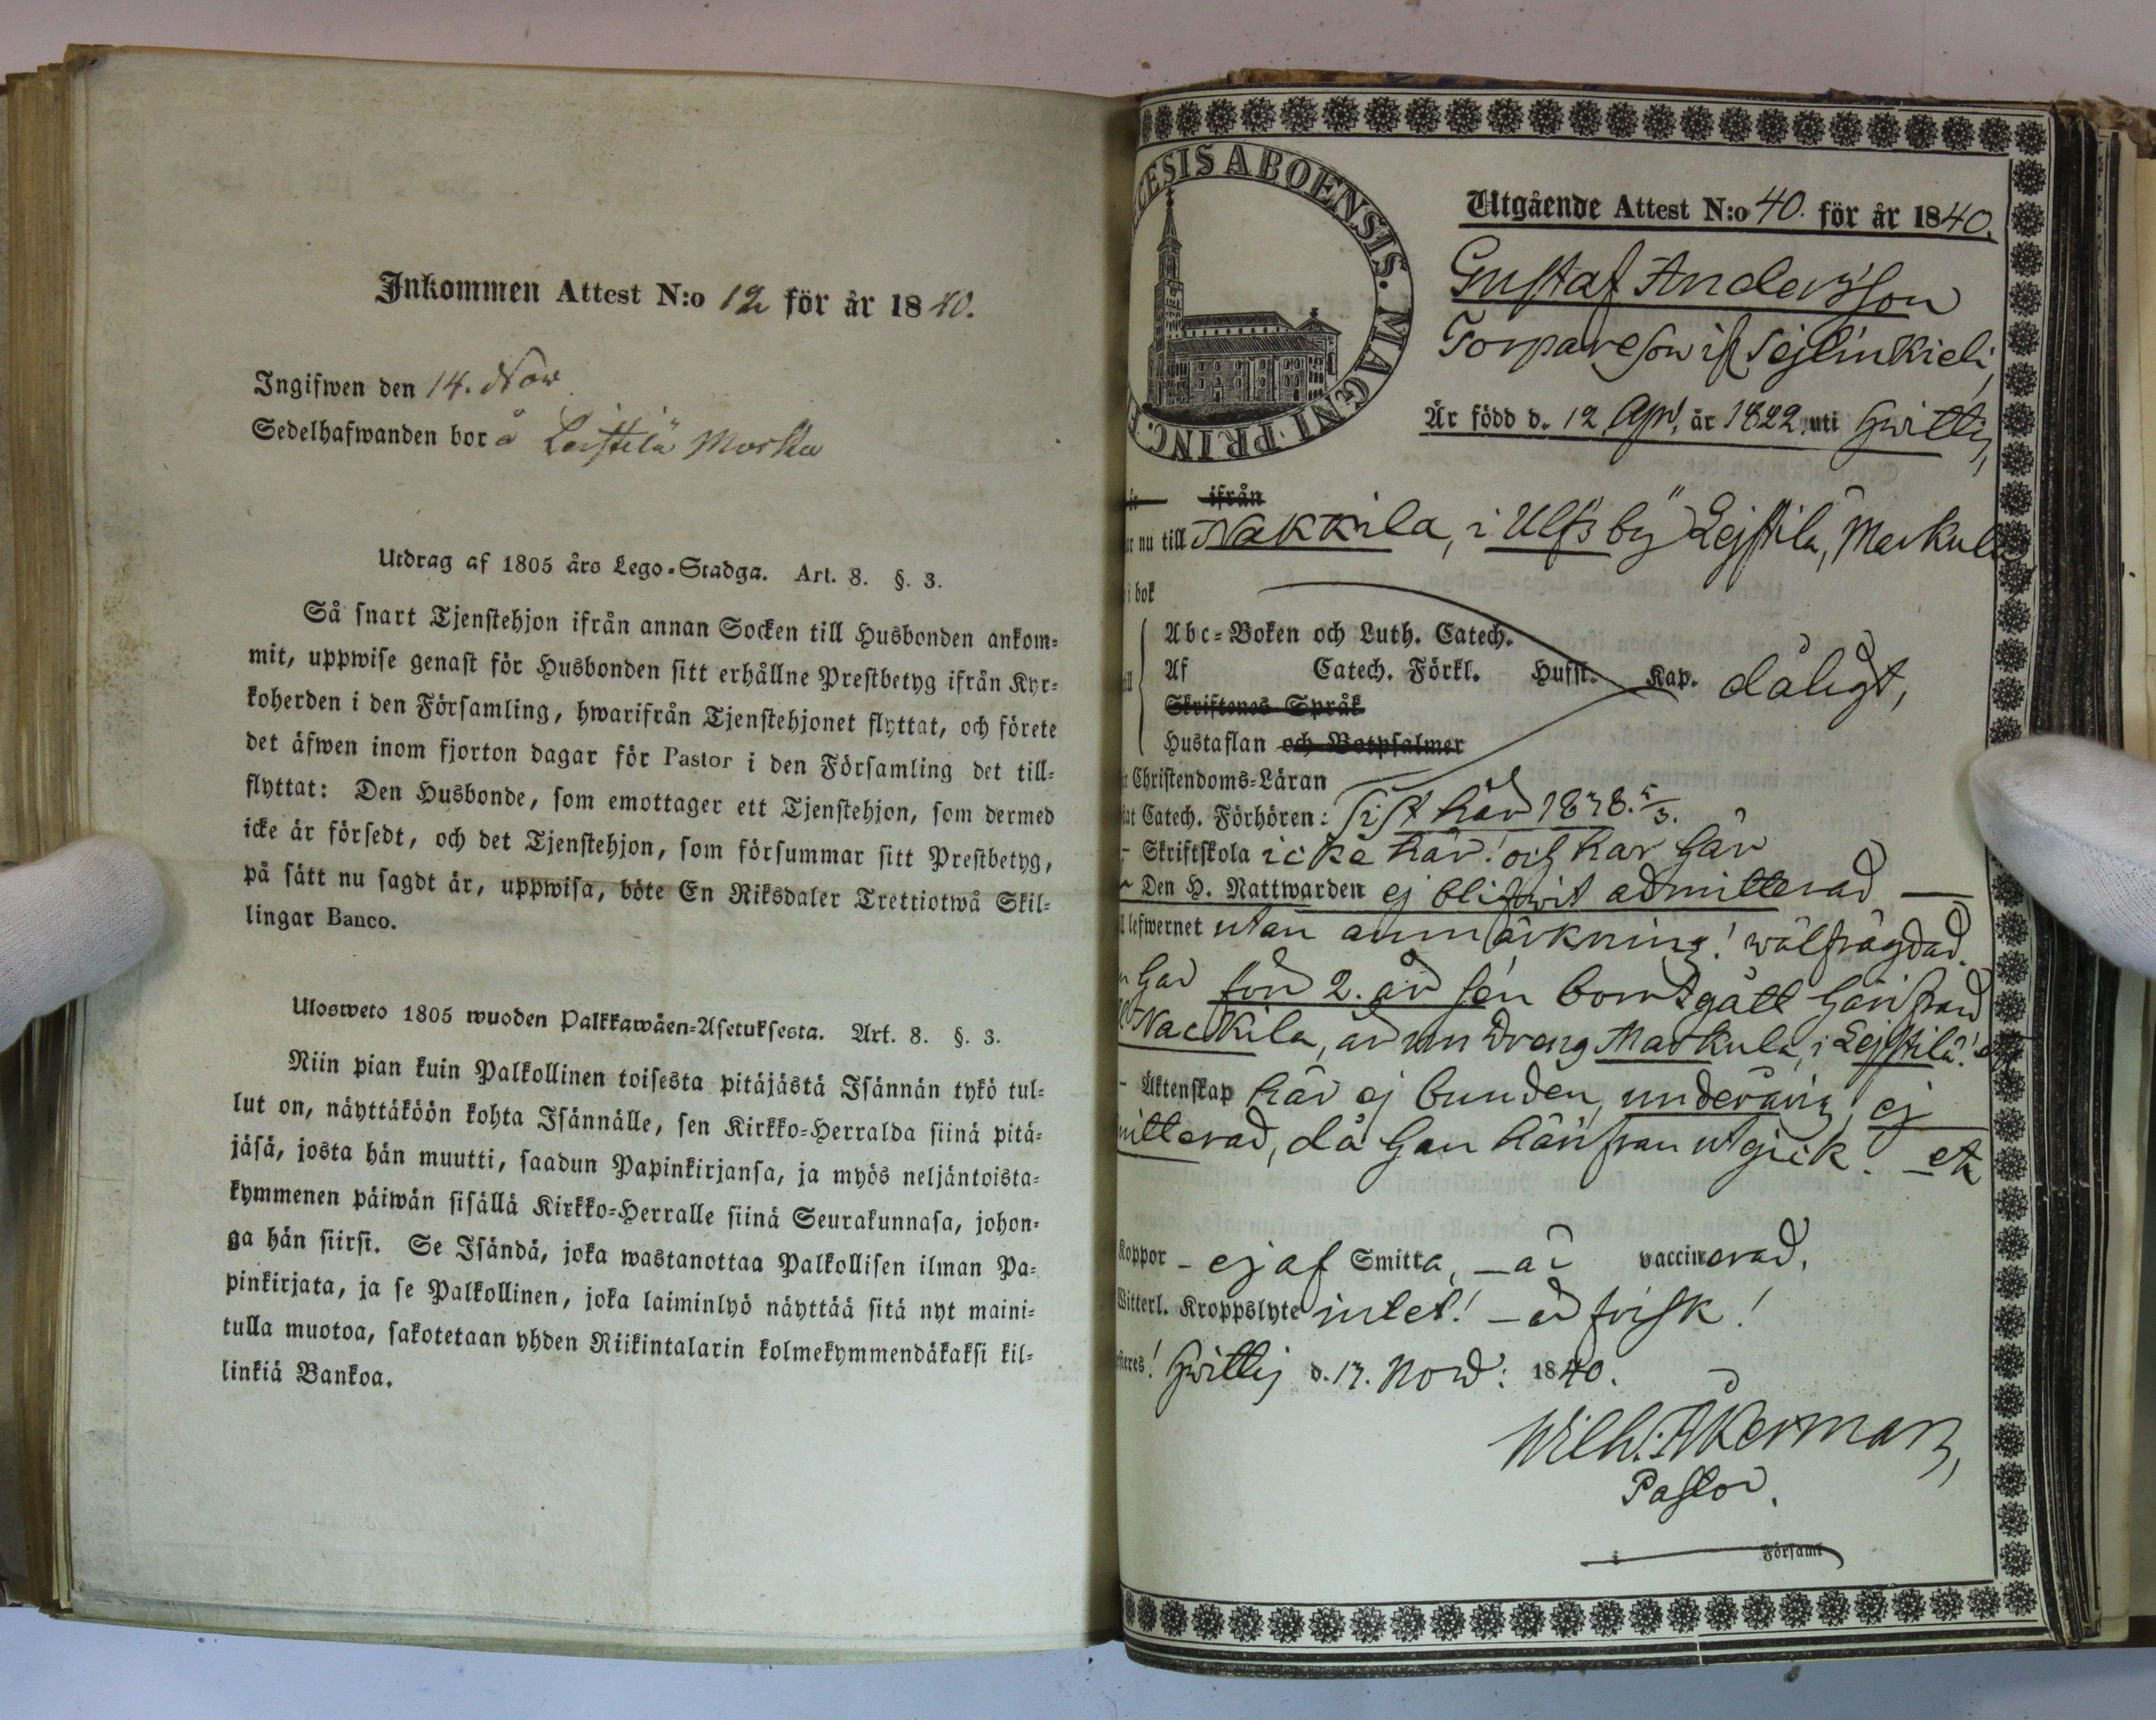 Inkommen Attest N:o 12 för år 1840.
Ingifwen den 14. Nov
Sedelhafwanden bor å Leistilä
Utdrag af 1805 års Lego-Stadga. Art. 8. §. 3.
Så snart Tjenstehjon ifrån annan Socken till Husbonden ankom-
mit, uppwise genast för Husbonden sitt erhållne Prestbetyg ifrån Kyr-
koherden i den Församling, hwarifrån Tjenstehjonet flyttat, och förete
det äfwen inom fjorton dagar för Pastor i den Församling det till-
flyttat: Den Husbonde, som emottager ett Tjenstehjon, som dermed
icke är försedt, och det Tjenstehjon, som försummar sitt Prestbetyg,
på sätt nu sagdt är, uppwisa, böte En Riksdaler Trettiotwå Skil-
lingar Banco.
Ulosweto 1805 wuoden Palkkawäen-Asetuksesta. Art. 8. §. 3.
Niin pian kuin Palkollinen toisesta pitäjästä Isännän tykö tul-
lut on, näyttäköön kohta Isännälle, sen Kirkko-Herralda siinä pitä-
jäsä, josta hän muutti, saadun Papinkirjansa, ja myös neljäntoista-
kymmenen päiwän sisällä Kirkko-Herralle siinä Seurakunnasa, johon-
ga hän siirsi. Se Isändä, joka wastanottaa Palkollisen ilman Pa-
pinkirjata, ja se Palkollinen, joka laiminlyö näyttää sitä nyt maini-
tulla muotoa, sakotetaan yhden Riikintalarin kolmekymmendäkaksi kil-
linkiä Bankoa.
CESIS ABOENSIS. MAGNI PRINC. F
Utgående Attest N:o 40. för år 1840.
Gustaf Andersson
Torpareson if. Sejlinkieli,
Är född d. 12 Apr. år 1822 uti Hvittis,
ifrån
nu till Nakkila, i Ulfsby Lejstilä, Markula
i bok
Abc-Boken och Luth. Catech.
Af Catech. Förkl. Hufst. Kap. dåligt,
Skriftenes Språk
Hustaflan och Botpsalmer
Christendoms-Läran
Catech. Förhören: sist här 1838. 5/3.
- Skriftskola icke här! och har här
Den H. Nattwarden ej blifwit admitterad —
lefwernet utan anmärkning! wälfrägdad.
har för 2. år sen bortgått härifrån
Nackila, är nu Dräng Markula, i Lejstilä!
- Äktenskap här ej bunden, underårig, ej
mitterad, då han härifrån utgick.
Koppor - ej af Smitta, - är vaccinerad.
Witterl. Kroppslyte intet! - är frisk!
Hvittis d. 13. Nov: 1840.
Wilh: Åkerman,
Pastor.
i Församl